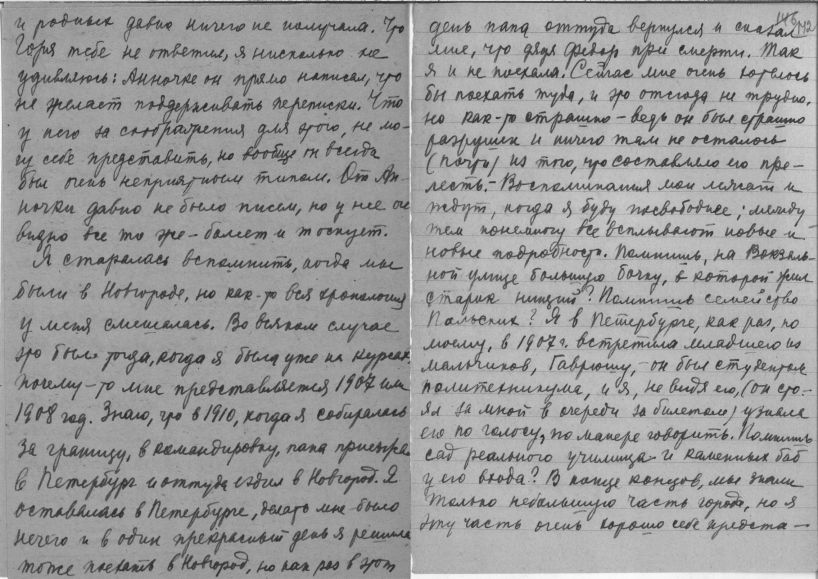 и родных давно ничего не получала. Что
Горя тебе не ответил, я нисколько не
удивляюсь: Анночке он прямо написал, что
не желает поддерживать переписки. Что
у него за соображения для этого, не мо-
гу себе представить, но вообще он всегда
был очень неприятным типом. От Ан-
ночки давно не было писем, но у нее оче
видно все то же - болеет и тоскует.
Я старалась вспомнить, когда мы
были в Новгороде, но как-то вся хронология
у меня смешалась. Во всяком случае
это было тогда, когда я была уже на курсах.
почему-то мне представляется 1907 или
1908 год. Знаю, что в 1910, когда я собиралась
за границу, в командировку, папа приезжал
в Петербург и оттуда ездил в Новгород. Я
оставалась в Петербурге, делать мне было
нечего и в один прекрасный день я решила
тоже поехать в Новгород, но как раз в этот
142
день папа оттуда вернулся и сказал
мне, что дядя Федор при смерти. Так
я и не поехала. Сейчас мне очень хотелось
бы поехать туда, и это отсюда не трудно,
но как-то страшно - ведь он был страшно
разрушен и ничего там не осталось
(почти) из того, что составляло его пре-
лесть. - Воспоминания мои лежат и
ждут, когда я буду посвободнее; между
тем понемногу все всплывают новые и
новые подробности. Помнишь, на Вокзаль-
ной улице большую бочку, в которой жил
старик нищий? Помнишь семейство
Польских? Я в Петербурге, как раз, по
моему, в 1907 г. встретила младшего из
мальчиков, Гаврюшу, - он был студентом
политехникума, и я, не видя его, (он сто-
ял за мной в очереди за билетом) узнала
его по голосу, по манере говорить. Помнишь
сад реального училища и каменных баб
у его входа? В конце концов, мы знали
только небольшую часть города, но я
эту часть очень хорошо себе предста-